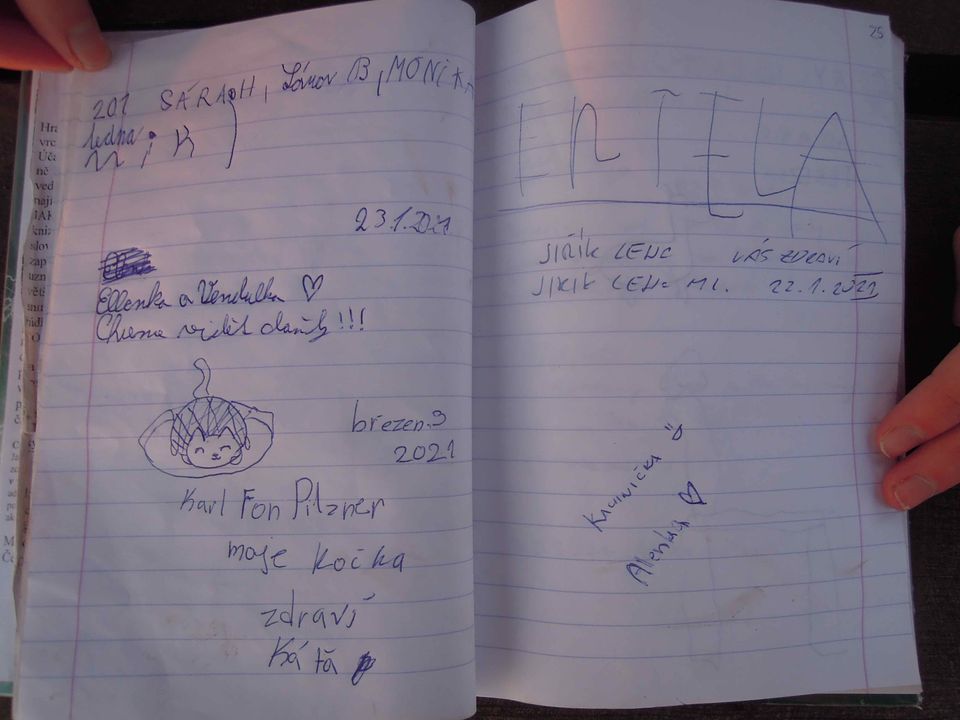 201 SÁRA H, B, MONIKA
ledna ; K
23.1.
Ellenka a Vendulka ♡
Chceme vidět !!!
březen.9
2021
Karl Fon Pilzner
moje kočka
zdraví
Káťa
25
ENTELA
JIŘÍK LENC VÁS ZDRAVÍ
JIŘÍK LENC ML. 22.1.2021
Alenka ♡